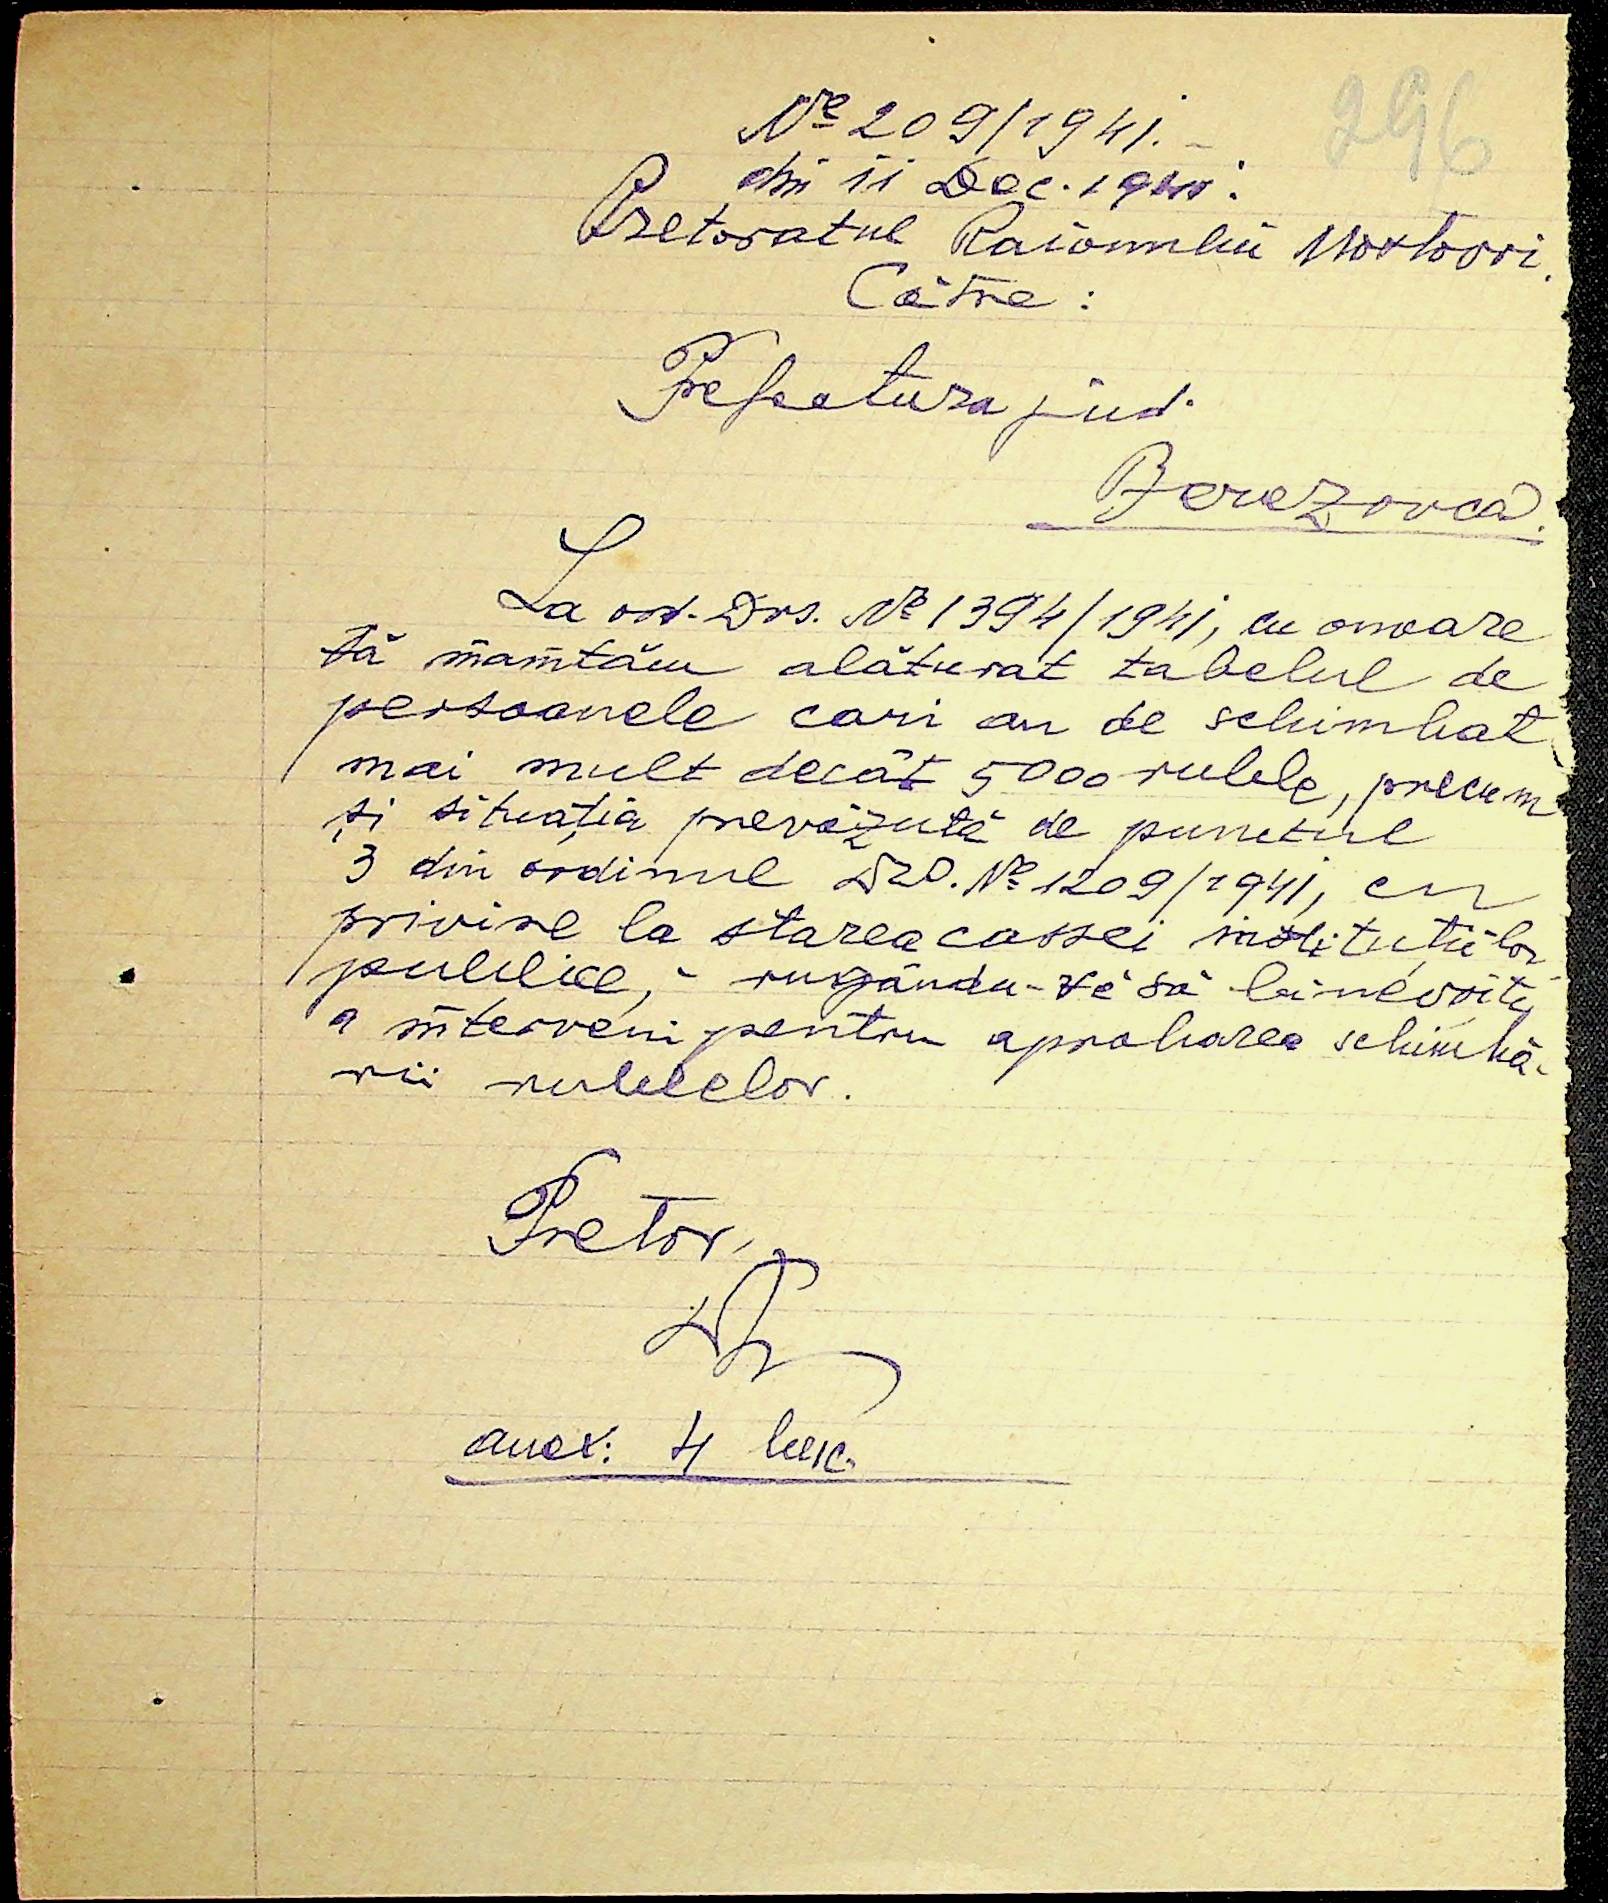 296
№ 209/1941.-
din 11 Dec. 1941.
Pretoratul Raionului Mostovoi.
Către:
Prefectura jud.
Berezovca.
La ord. Dvs. № 1394/1941, cu onoare
Vă înaintăm alăturat tabelul de
persoanele cari au de schimbat
mai mult decât 5000 ruble, precum
și situația prevăzută de punctul
3 din ordinul № 1209/1941, cu
privire la starea cassei instituțiilor
publice, - rugându-Vă să binevoiți
a interveni pentru aprobarea schimbă-
rii rublelor.
Pretor,
anex: 4 buc.